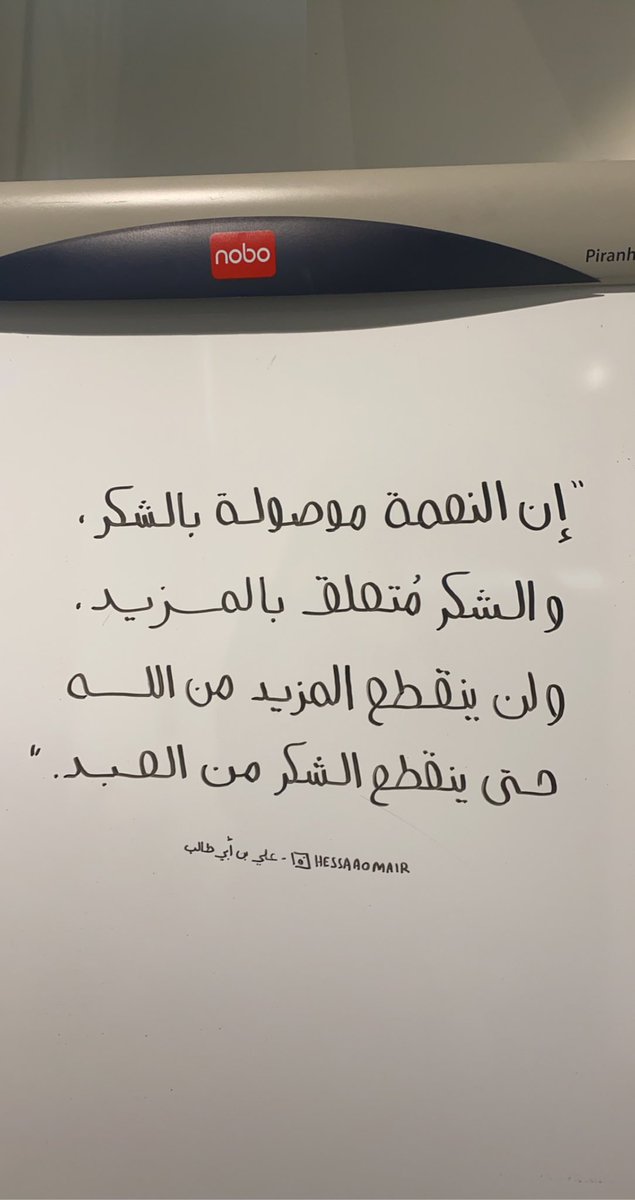 nobo
Piranh
"إن النعمة موصولة بالشكر،
والشكر مُتعلق بالمـزيـد،
ولن ينقطع المزيد من اللـه
حتى ينقطع الشكر من العبـد."
HESSAAOMAIR - علي بن أبي طالب